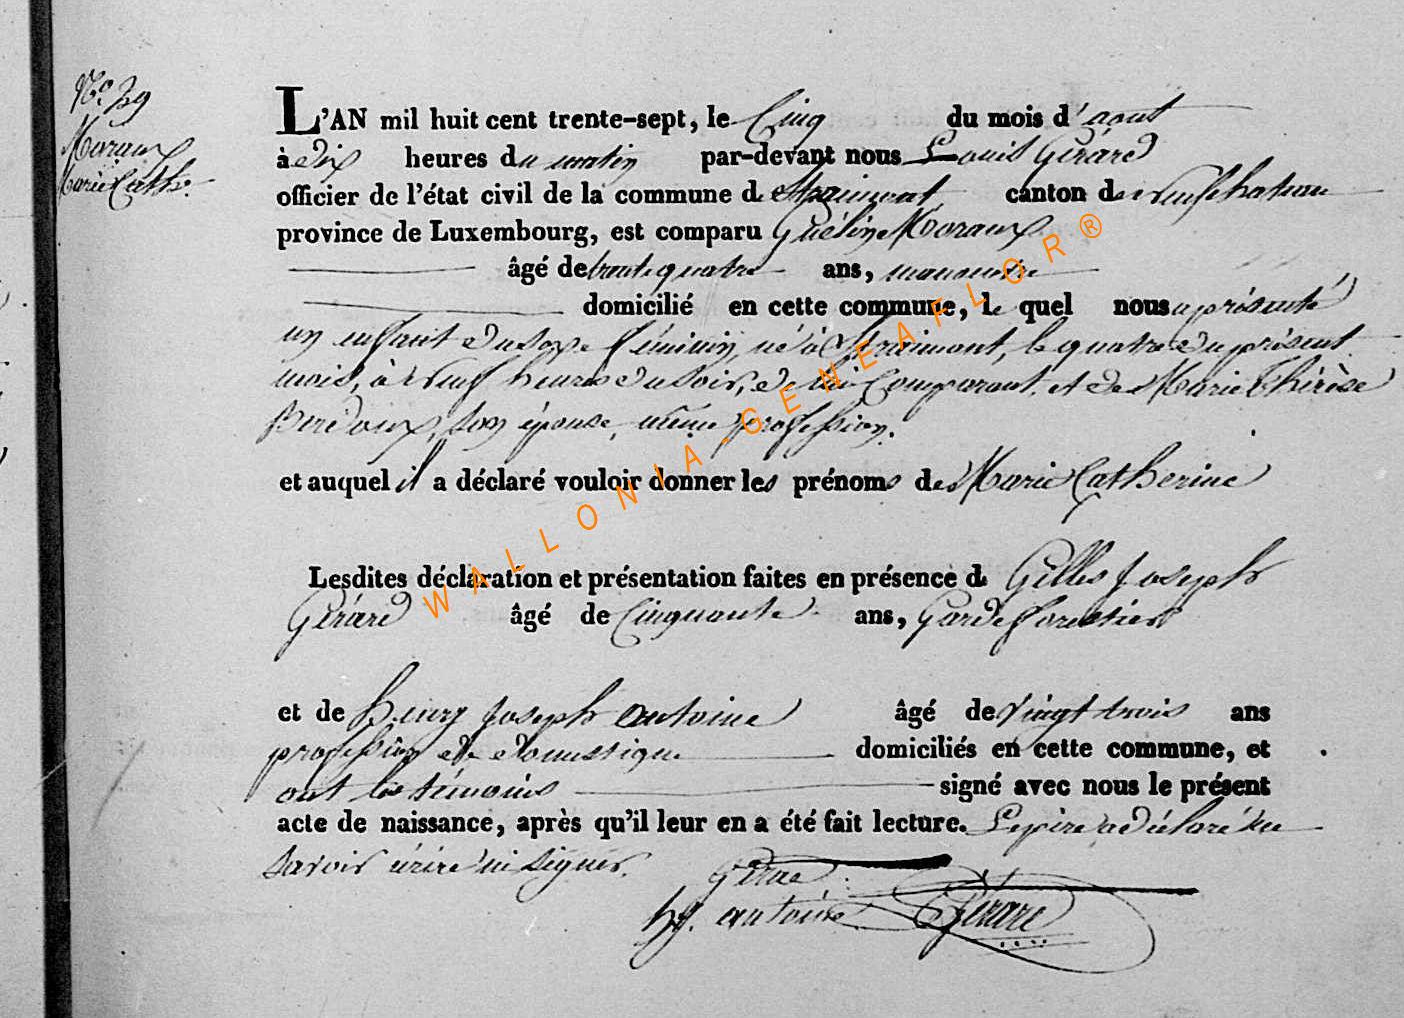 No. 39
Maraux
Marie Cath.
L'AN mil huit cent trente-sept, le Cinq du mois d'aout
à dix heures du matin par-devant nous Louis Gérard
officier de l'état civil de la commune de Straimont canton de neufchateau
province de Luxembourg, est comparu Guélin Maraux
âgé de trente quatre ans, manouvrier
domicilié en cette commune, le quel nous a présenté
un enfant du sexe féminin, né à Straimont, le quatre du présent
mois, à neuf heures du soir, de lui Comparant, et de Marie Thérèse
son épouse, même profession.
et auquel il a déclaré vouloir donner les prénoms de Marie Catherine
Lesdites déclaration et présentation faites en présence de Gilles Joseph
Gérard âgé de Cinquante ans, Garde forestier
et de henry Joseph antoine âgé de vingt trois ans
profession de domestique domiciliés en cette commune, et
ont les témoins signé avec nous le présent
acte de naissance, après qu'il leur en a été fait lecture. Le père a déclaré ne
savoir écrire ni signer.
hj. antoine Gérard
WALLONIA-GENEAFLOR®